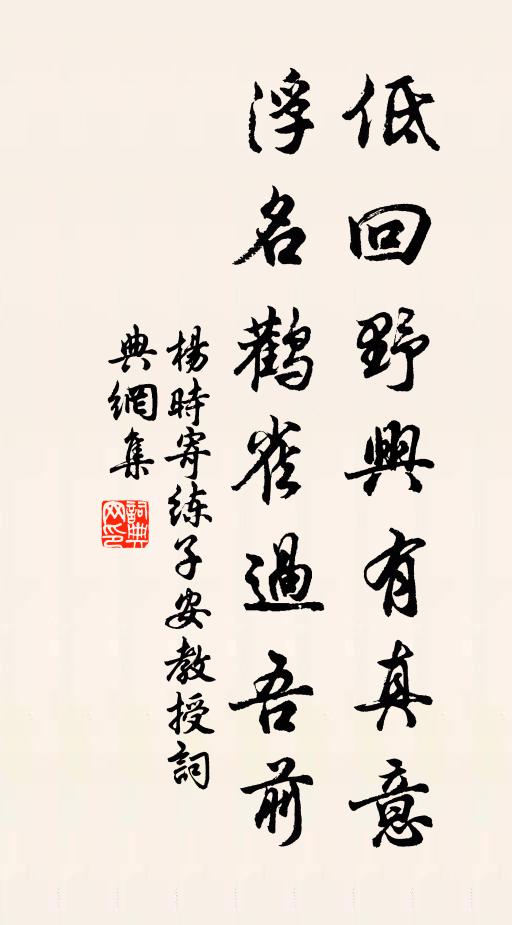 低回野興有真意
浮名鸛雀過吾前
楊時寄练子安教授詞
典網集
詞典
网印